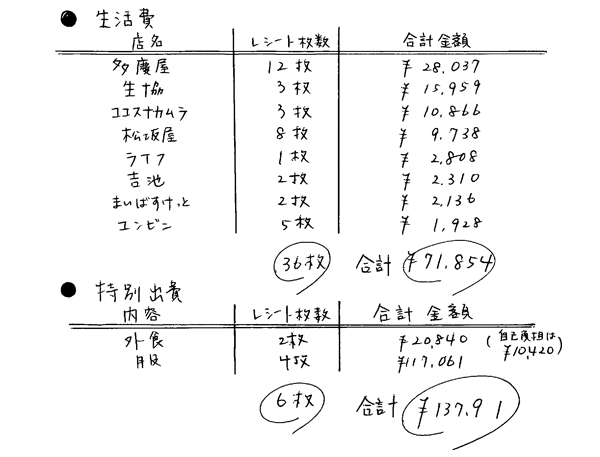 ● 生活費
店名 レシート枚数 合計金額
多慶屋 12枚 ¥ 28,037
生協 3枚 ¥ 15,959
ココスナカムラ 3枚 ¥ 10,866
松坂屋 8枚 ¥ 9,738
ライフ 1枚 ¥ 2,808
吉池 2枚 ¥ 2,310
まいばすけっと 2枚 ¥ 2,136
コンビニ 5枚 ¥ 1,928
36枚 合計 ¥71,854
● 特別出費
内容 レシート枚数 合計金額
外食 2枚 ¥20,840 (自己負担は
¥10,420)
服 4枚 ¥117,061
6枚 合計 ¥137,91